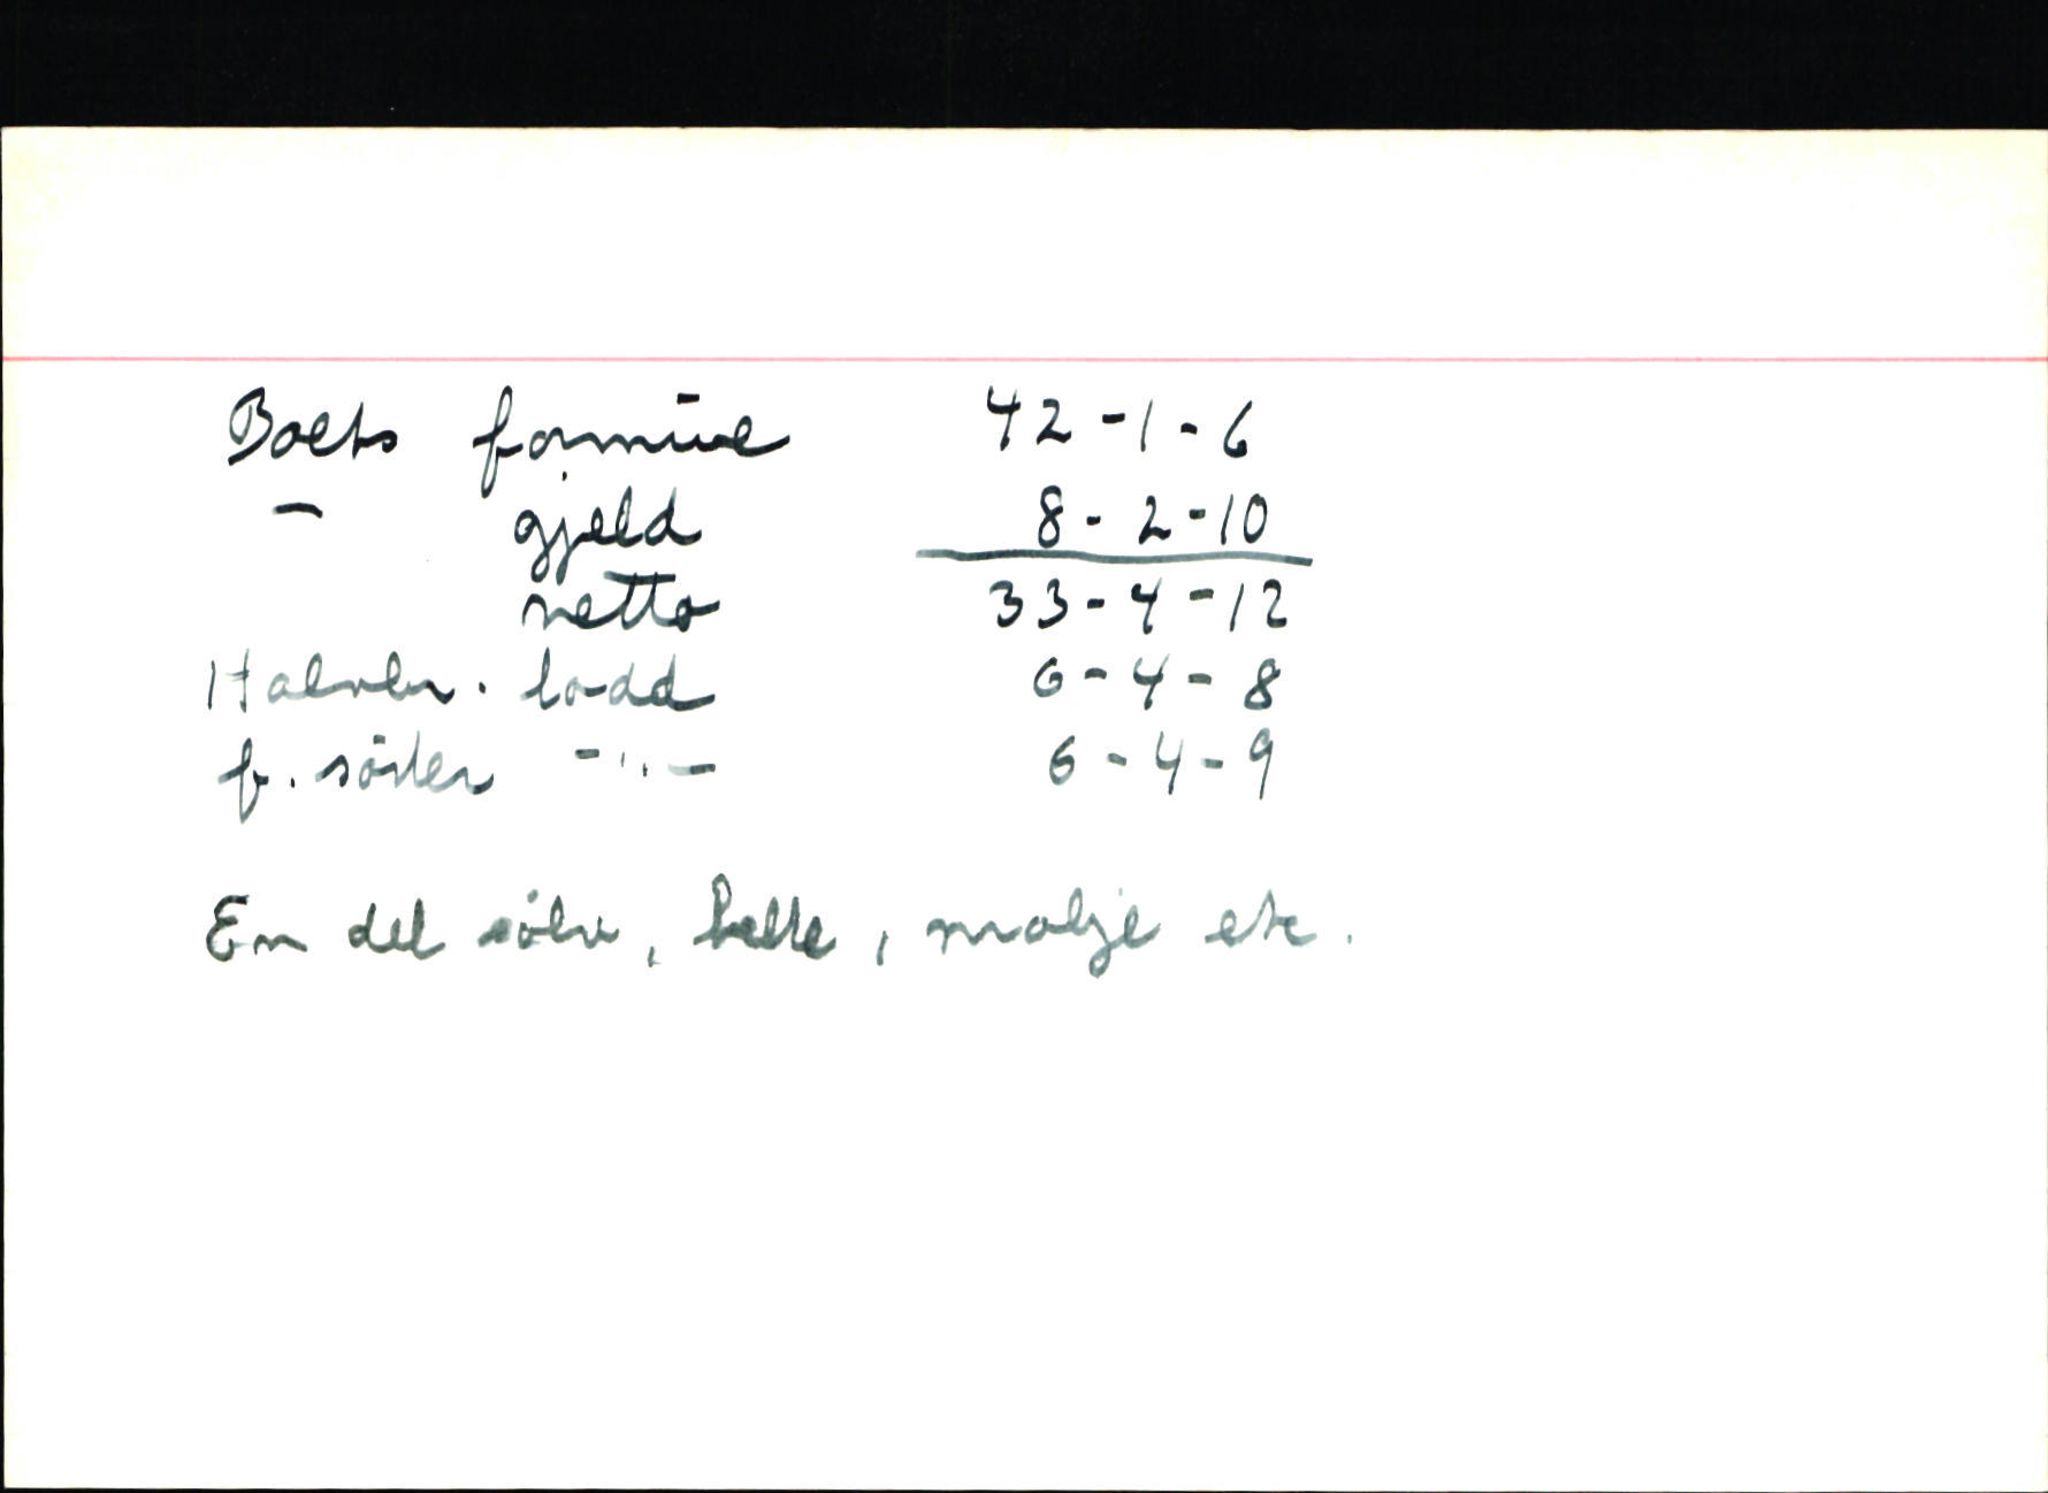 Boets formue 42-1-6
- gjeld 8-2-10
netto 33-4-12
Halvbr. lodd 6-4-8
f. söster -"- 6-4-9
En del sölv, belte, malje etc.